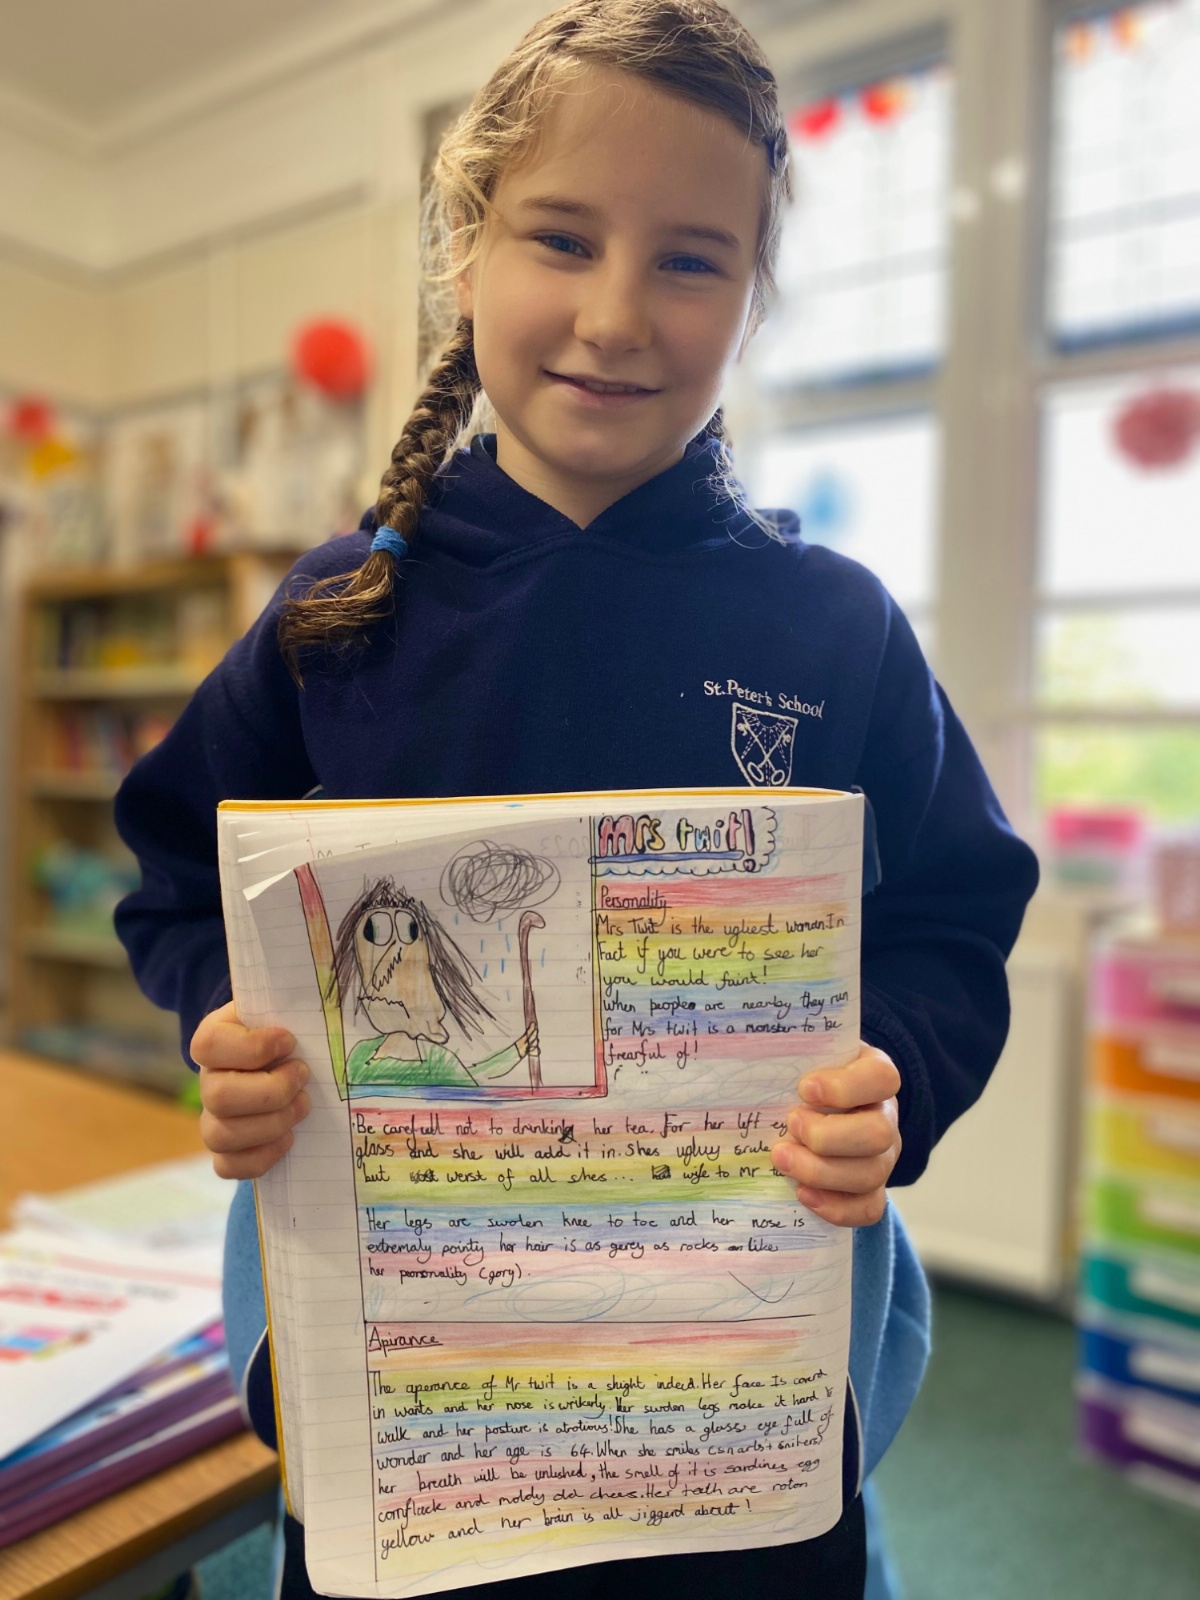 St. Peter's School
Mrs twit!
Personality
Mrs Twit is the ugliest woman. In
Fact if you were to see her
you would faint!
When people are nearby they run
for Mrs twit is a monster to be
frearful of!
Be carefuel not to drinking her tea. For her left ey
glass and she will add it in. Shes ugluy
but worst of all shes... wife to Mr tw
Her legs are swolen knee to toe and her nose is
extremaly pointy her hair is as gerey as rocks like
her personality (gory).
Apirance
The aperance of Mr twit is a shight indeed. Her face Is coverd
in warts and her nose is wrikerly. Her swolen legs make it hard to
walk and her posture is atrotious! She has a glass eye full of
wonder and her age is 64. When she smiles (snarls + snikers)
her breath will be unleshed, the smell of it is sardines egg
cornflack and moldy old chees. Her teath are roton
yellow and her brain is all jiggerd about!